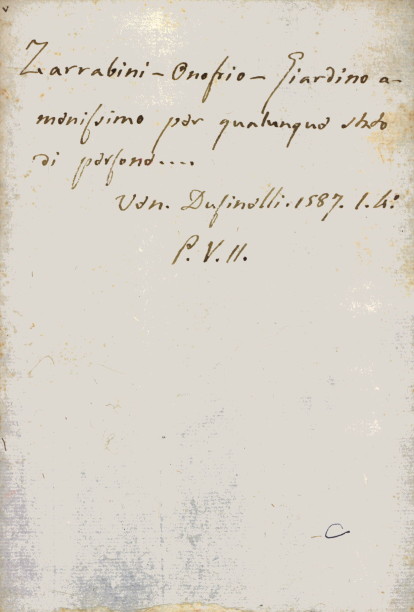 Zarrabini - Onofrio - Giardino a-
meniſsimo per qualunque stato
di perſone....
Ven. Duſinelli. 1587. 1. 4:
P. V. 11.
C